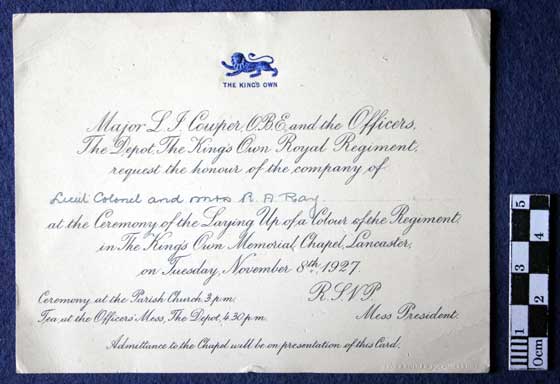 THE KING'S OWN
Major L. J. Cowper, O.B.E. and the Officers,
The Depot, The King's Own Royal Regiment,
request the honour of the company of
Lieut Colonel and Mrs R. A. Ray
at the Ceremony of the Laying Up of a Colour of the Regiment,
in The King's Own Memorial Chapel, Lancaster,
on Tuesday, November 8th, 1927.
Ceremony at the Parish Church 3 p.m.
Tea at the Officers' Mess, The Depot, 4.30 p.m.
R.S.V.P.
Mess President.
Admittance to the Chapel will be on presentation of this Card.
0cm 1 2 3 4 5